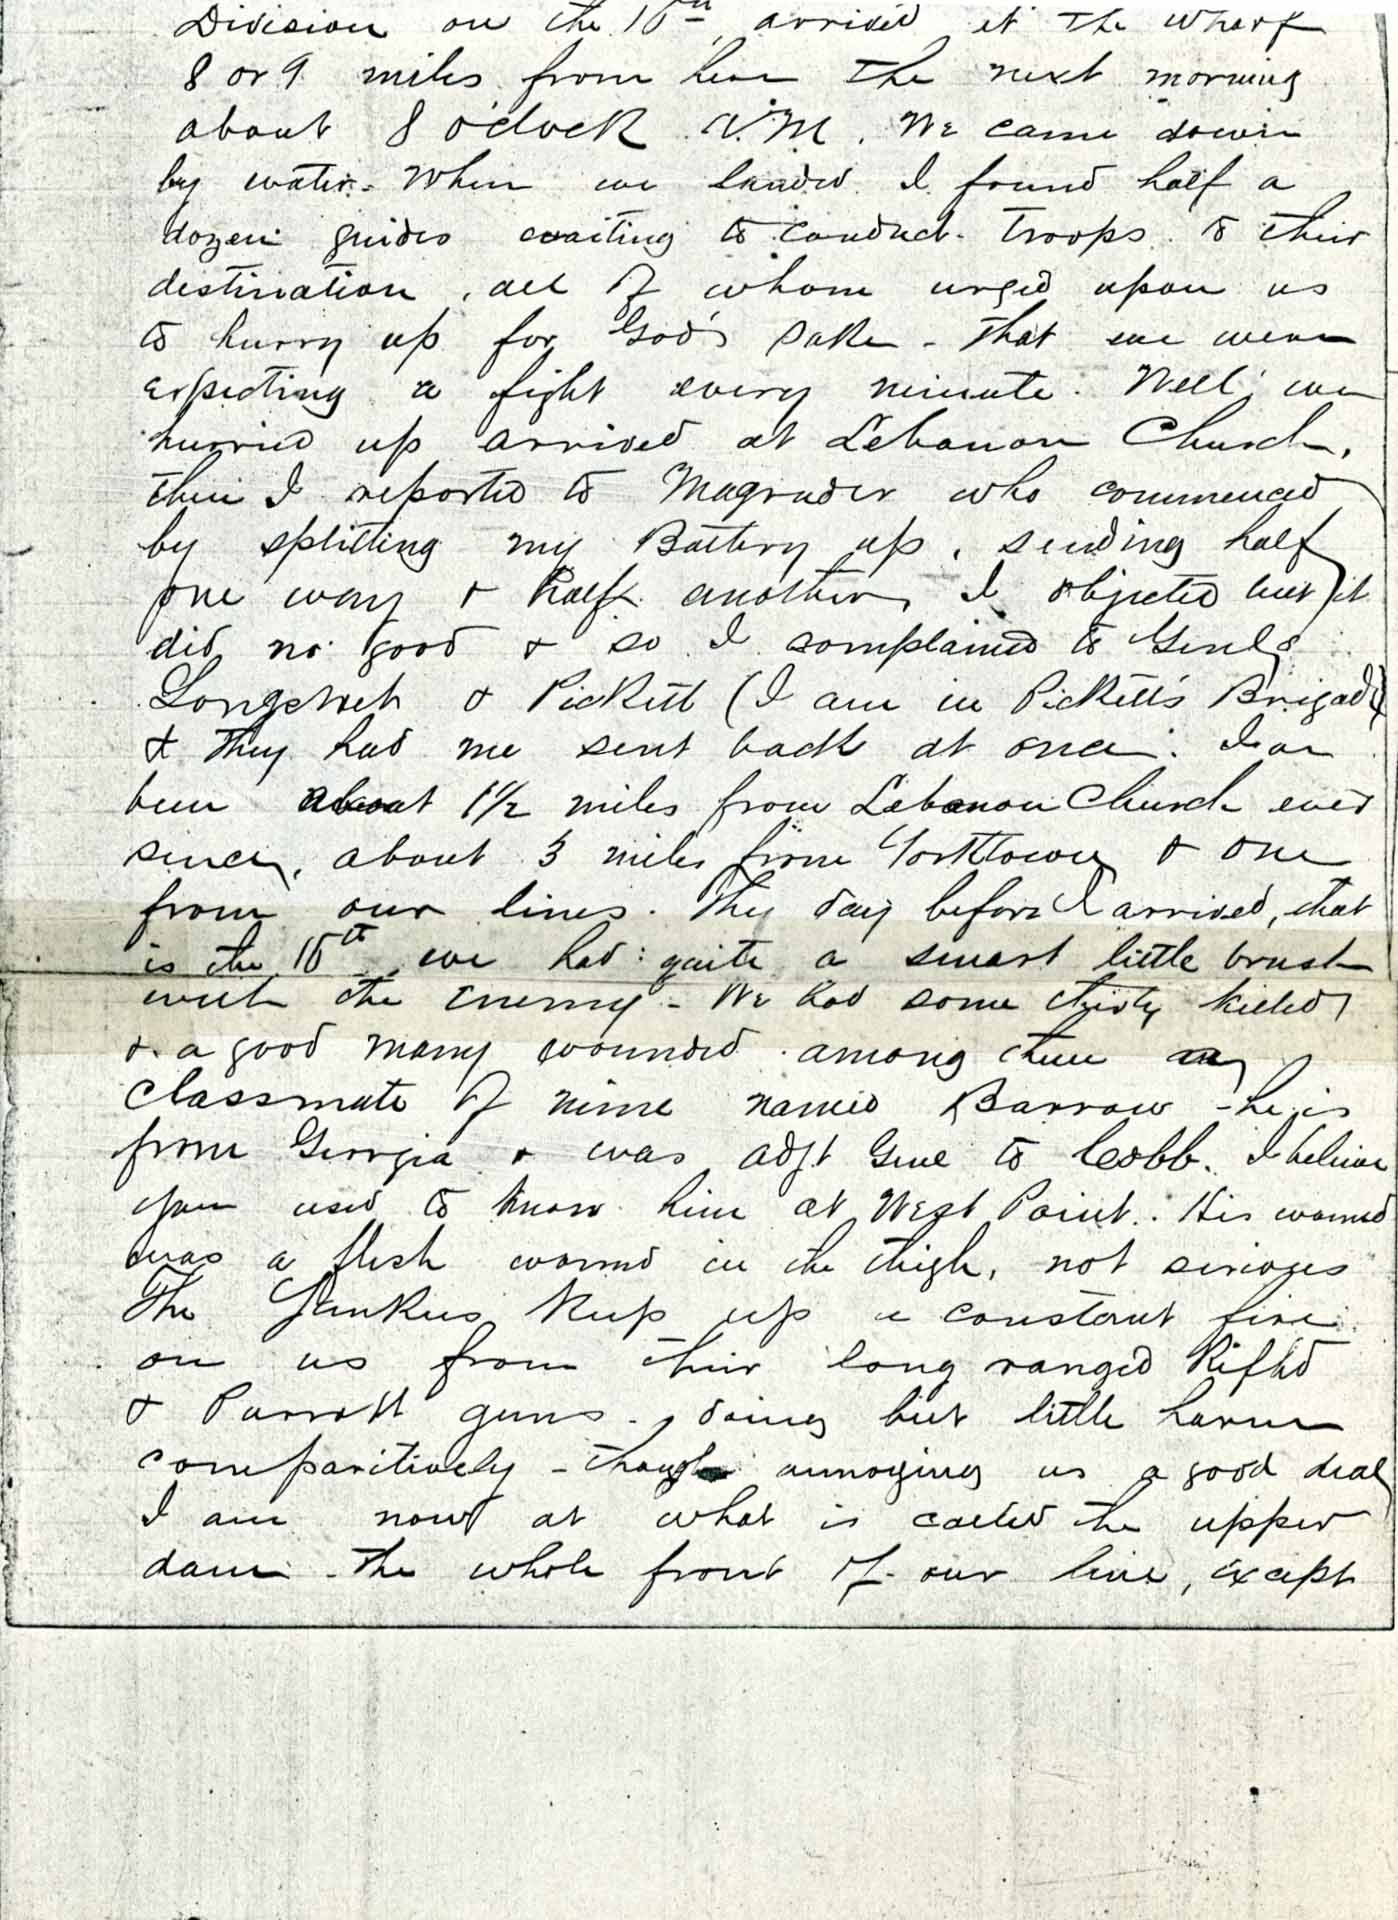 Division on the 16th, arrived at the wharf
8 or 9 miles from here the next morning
about 8 o'clock A.M. We came down
by water. When we landed I found half a
dozen guides waiting to conduct troops to their
destination, all of whom urged upon us
to hurry up for God's sake - that we were
expecting a fight every minute. Well, we
hurried up arrived at Lebanon Church,
then I reported to Magruder who commenced
by splitting my Battery up, sending half
one way & half another, I objected but it
did no good & so I complained to Genls
Longstreet & Pickett (I am in Pickett's Brigade)
& they had me sent back at once.
been about 1½ miles from Lebanon Church ever
since, about 3 miles from Yorktown & one
from our lines. The day before I arrived, that
is the 16th, we had quite a smart little brush
with the enemy - We had some thirty killed
& a good many wounded among them a
classmate of mine named Barrow - he is
from Georgia & was adjt Genl to Cobb. I believe
you used to know him at West Point. His wound
was a flesh wound in the thigh, not serious
The Yankees keep up a constant fire
on us from their long ranged Rifled
& Parrott guns - doing but little harm
comparitively - though annoying us a good deal
I am now at what is called the upper
dam - the whole front of our line, except